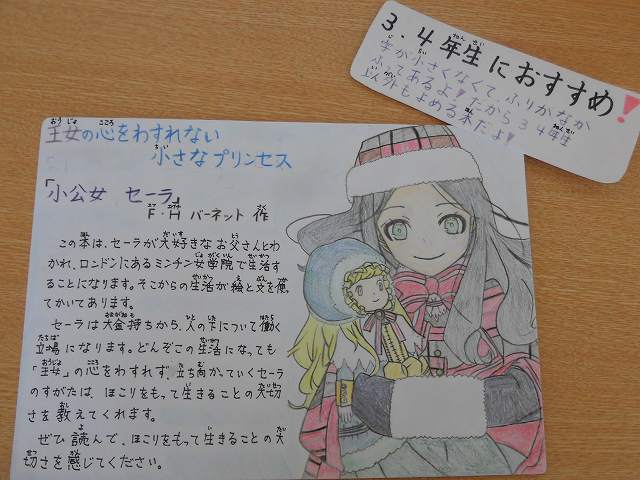 3.4年生におすすめ!
字が小さくなくて、ふりがなが
ふってあるよ♥だから34年生
以外もよめる本だよ♥
王女の心をわすれない
小さなプリンセス
「小公女 セーラ」
F・H バーネット 作
この本は、セーラが大好きなお父さんとわ
かれ、ロンドンにあるミンチン女学院で生活す
ることになります。そこからの生活が絵と文を使っ
てかいてあります。
セーラは大金持ちから、人の下について働く
立場になります。どんぞこの生活になっても
「王女」の心をわすれず、立ち向かっていくセーラ
のすがたは、ほこりをもって生きることの大切
さを教えてくれます。
ぜひ読んで、ほこりをもって生きることの大
切さを感じてください。